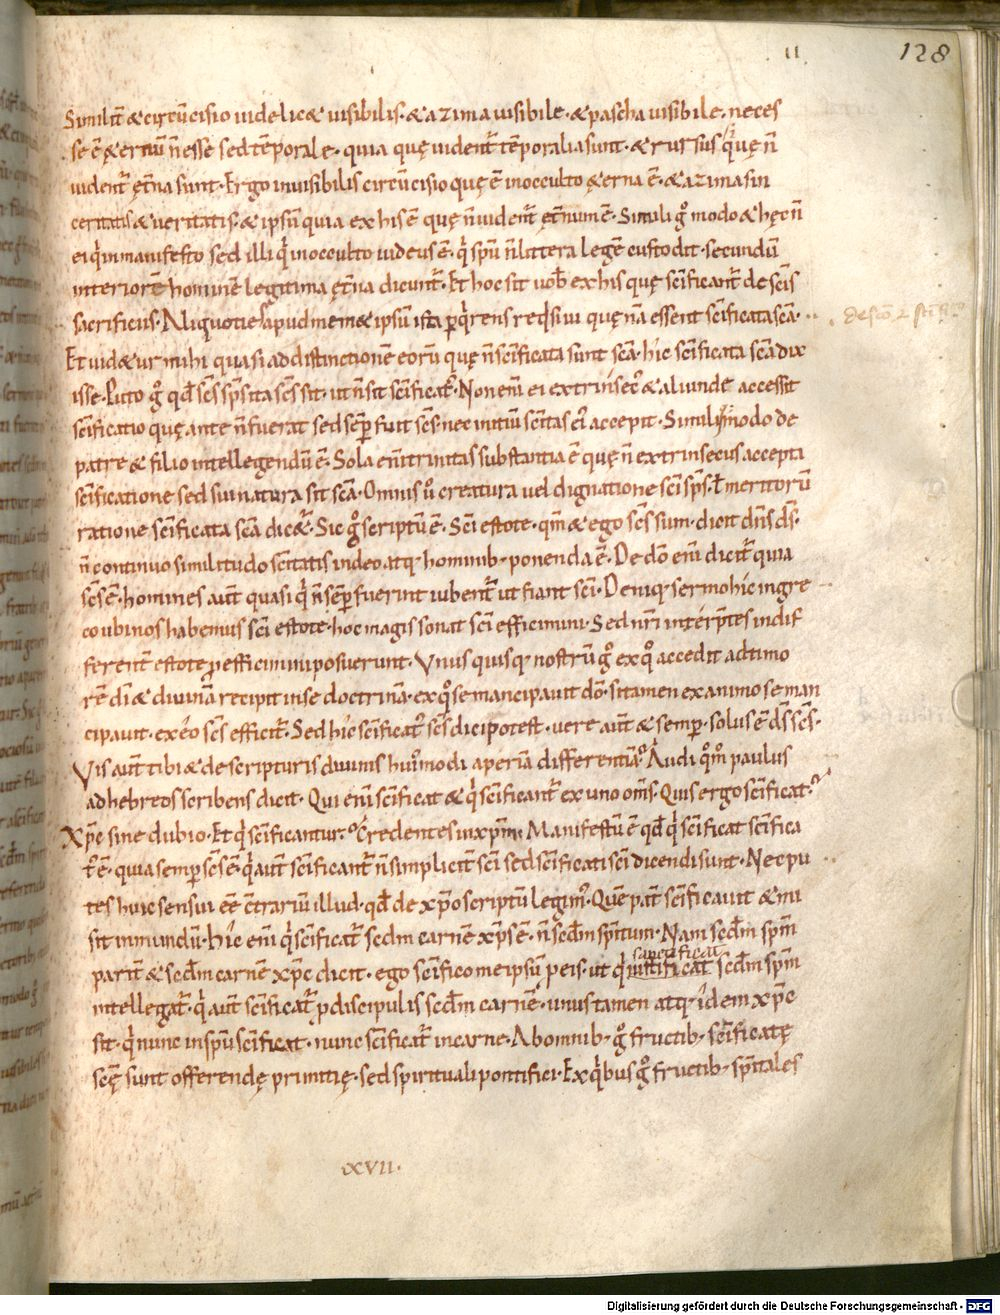 11 128
Similit̄ & circūcisio uidelic& uisibilis · & azima uisibile · & pascha uisibile · neces
se ē &ernū n̄ esse sed tēporale · quia quę uident̄ tēporalia sunt · & rursus quę n̄
uident̄ ęt̄na sunt · Ergo inuisibilis circūcisio quę ē in occulto &erna ē · & azima sin
ceritatis & ueritatis · & ipsū quia ex his ē quę n̄ uident̄ ęt̄num ē · Simili g̊ modo & hęc n̄
ei q̇ in manifesto sed illi q̇ in occulto iudeus ē · q̇ spū n̄ littera legē custodit · secundū
interiorē hominē legitima ęt̄na dicunt̄ · Et hoc sit uob̄ ex his quę sc̄ificant̄ de sc̄is
sacrificiis · Aliquotiens apud mem& ipsū ista ꝑq̇rens req̇siui quę nā essent sc̄ificata sc̄a ·
de sc̄o
Et uid&ur mihi quasi ad distinctionē eorū quę n̄ sc̄ificata sunt sc̄a · hic sc̄ificata sc̄a dix
isse · Puto g̊ qd̄ sc̄s sp̄s ita sc̄s sit · ut n̄ sit sc̄ificat᷒ · Non enī ei extrinsec᷒ & aliunde accessit
sc̄ificatio quę ante n̄ fuerat sed semꝑ fuit sc̄s · nec initiū sc̄itas ei᷒ accepit · Similiq̇ modo de
patre & filio intellegendū ē · Sola eni trinitas substantia ē quę n̄ extrinsecus accepta
sc̄ificatione sed sui natura sit sc̄a · Omnis u̾ creatura uel dignatione sc̄i sp̄s · ł meritorū
ratione sc̄ificata sc̄a dic&᷒ · Sic g̊ scriptū ē · Sc̄i estote · qm̄ & ego sc̄s sum · dicit dn̄s ds̄ ·
n̄ continuo similitudo sc̄itatis in deo atq · hominib · ponenda ē · De dō enī dicit᷒ quia
sc̄s ē · homines aut̄ quasi q̇ n̄ semꝑ fuerint iubent᷒ ut fiant sc̄i · Deniq · sermo hic in gre
co ubi nos habemus sc̄i estote · hoc magis sonat sc̄i efficimini · Sed nr̄i int̄prętes indif
ferent̄ estote ꝓ efficimini posuerunt · Vnus quisq · nostrū g̊ ex q̊ accedit ad timo
rē di̅ & diuinā recipit in se doctrinā · ex q̊ se mancipauit dō · si tamen ex animo se man
cipauit · ex eo sc̄s efficit᷒ · Sed hic sc̄ificat᷒ sc̄s dici potest · uere aut̄ & semp · solus ē ds̄ sc̄s ·
Vis aut̄ tibi & de scripturis diuinis hui᷒modi aperiā differentiā · Audi q̊m̄ paulus
ad hebreos scribens dicit · Qui enī sc̄ificat & q̇ sc̄ificant᷒ ex uno om̄s · Quis ergo sc̄ificat ·
Xp̄c sine dubio · Et q̇ sc̄ificantur · Credentes in xp̄m · Manifestū ē qd̄ q̇ sc̄ificat sc̄ifica
t᷒ ē · quia semp sc̄s ē · q̇ aut̄ sc̄ificant᷒ n̄ simplicit̄ sc̄i sed sc̄ificati sc̄i dicendi sunt · Nec pu
tes huic sensui eē c̄trariū illud · qd̄ de xp̄o scriptū legim᷒ · Quē pat̄ sc̄ificauit & mi
sit in mundū · hic enī q̇ sc̄ificat᷒ scdm̄ carnē xp̄s ē · n̄ scdm̄ sp̄itum · Nam scdm̄ sp̄m
sanctificat
parit̄ & scdm̄ carnē xp̄c dicit · ego sc̄ifico me ipsū p eis · ut q̇ iustificat scdm̄ sp̄m
intellegat᷒ · q̇ aut̄ sc̄ificat᷒ p discipulis scdm̄ carnē · unus tamen atq · idem xp̄c
sit · q̇ nunc in spū sc̄ificat · nunc sc̄ificat᷒ in carne · Ab omnib · g̊ fructib · sc̄ificatę
sc̄ę sunt offerendę primitię · sed spirituali pontifici · Ex q̇bus g̊ fructib · sp̄itales
XVII ·
Digitalisierung gefördert durch die Deutsche Forschungsgemeinschaft - DFG